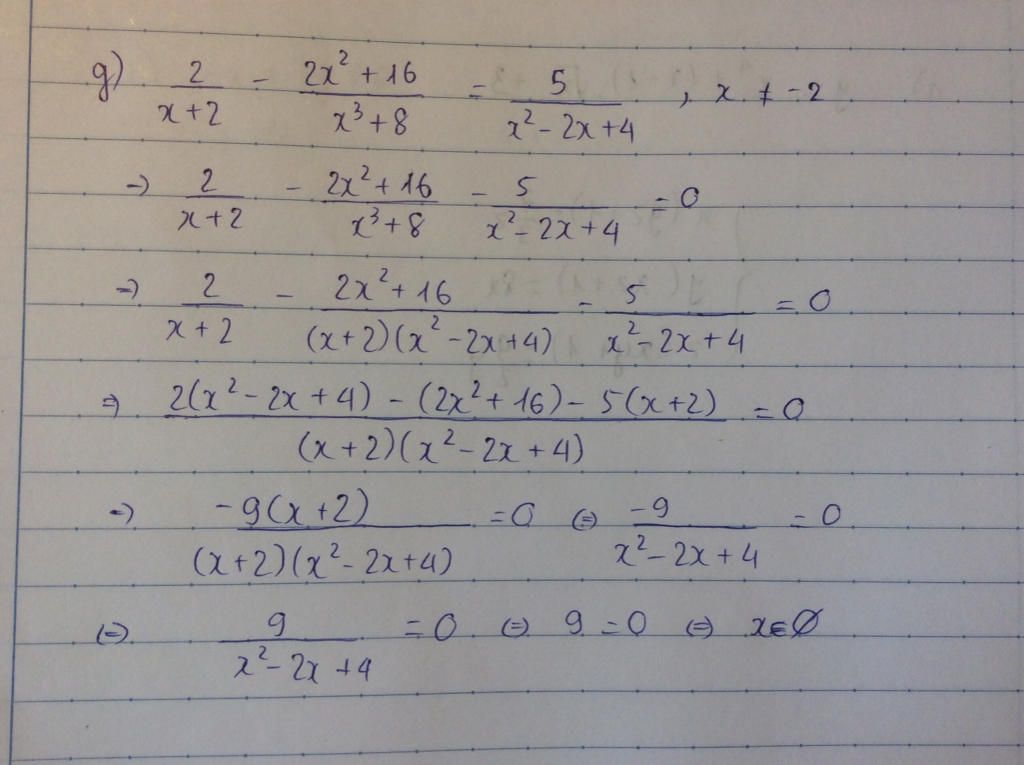 g) 2/(x+2) - (2x²+16)/(x³+8) = 5/(x²-2x+4) , x ≠ -2
→ 2/(x+2) - (2x²+16)/(x³+8) - 5/(x²-2x+4) = 0
⇒ 2/(x+2) - (2x²+16)/((x+2)(x²-2x+4)) - 5/(x²-2x+4) = 0
⇒ (2(x²-2x+4) - (2x²+16) - 5(x+2))/((x+2)(x²-2x+4)) = 0
⇒ (-9(x+2))/((x+2)(x²-2x+4)) = 0 ⇔ -9/(x²-2x+4) = 0
⇔ 9/(x²-2x+4) = 0 ⇔ 9 = 0 ⇔ x∈∅